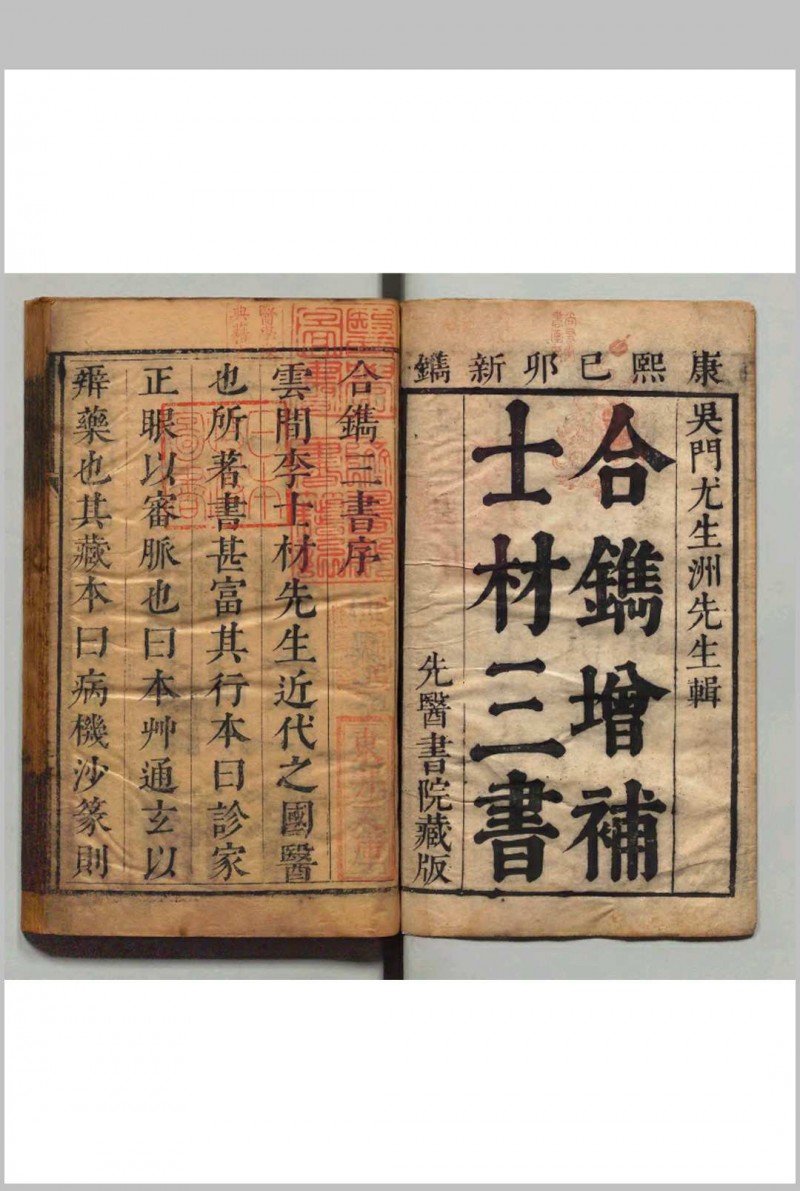 康熙己卯新鐫
吳門尤生洲先生輯
合鐫增補
士材三書
先醫書院藏版
合鐫三書序
雲間李士材先生近代之國醫
也所著書甚富其行本曰診家
正眼以審脈也曰本艸通玄以
辨藥也其藏本曰病機沙篆則